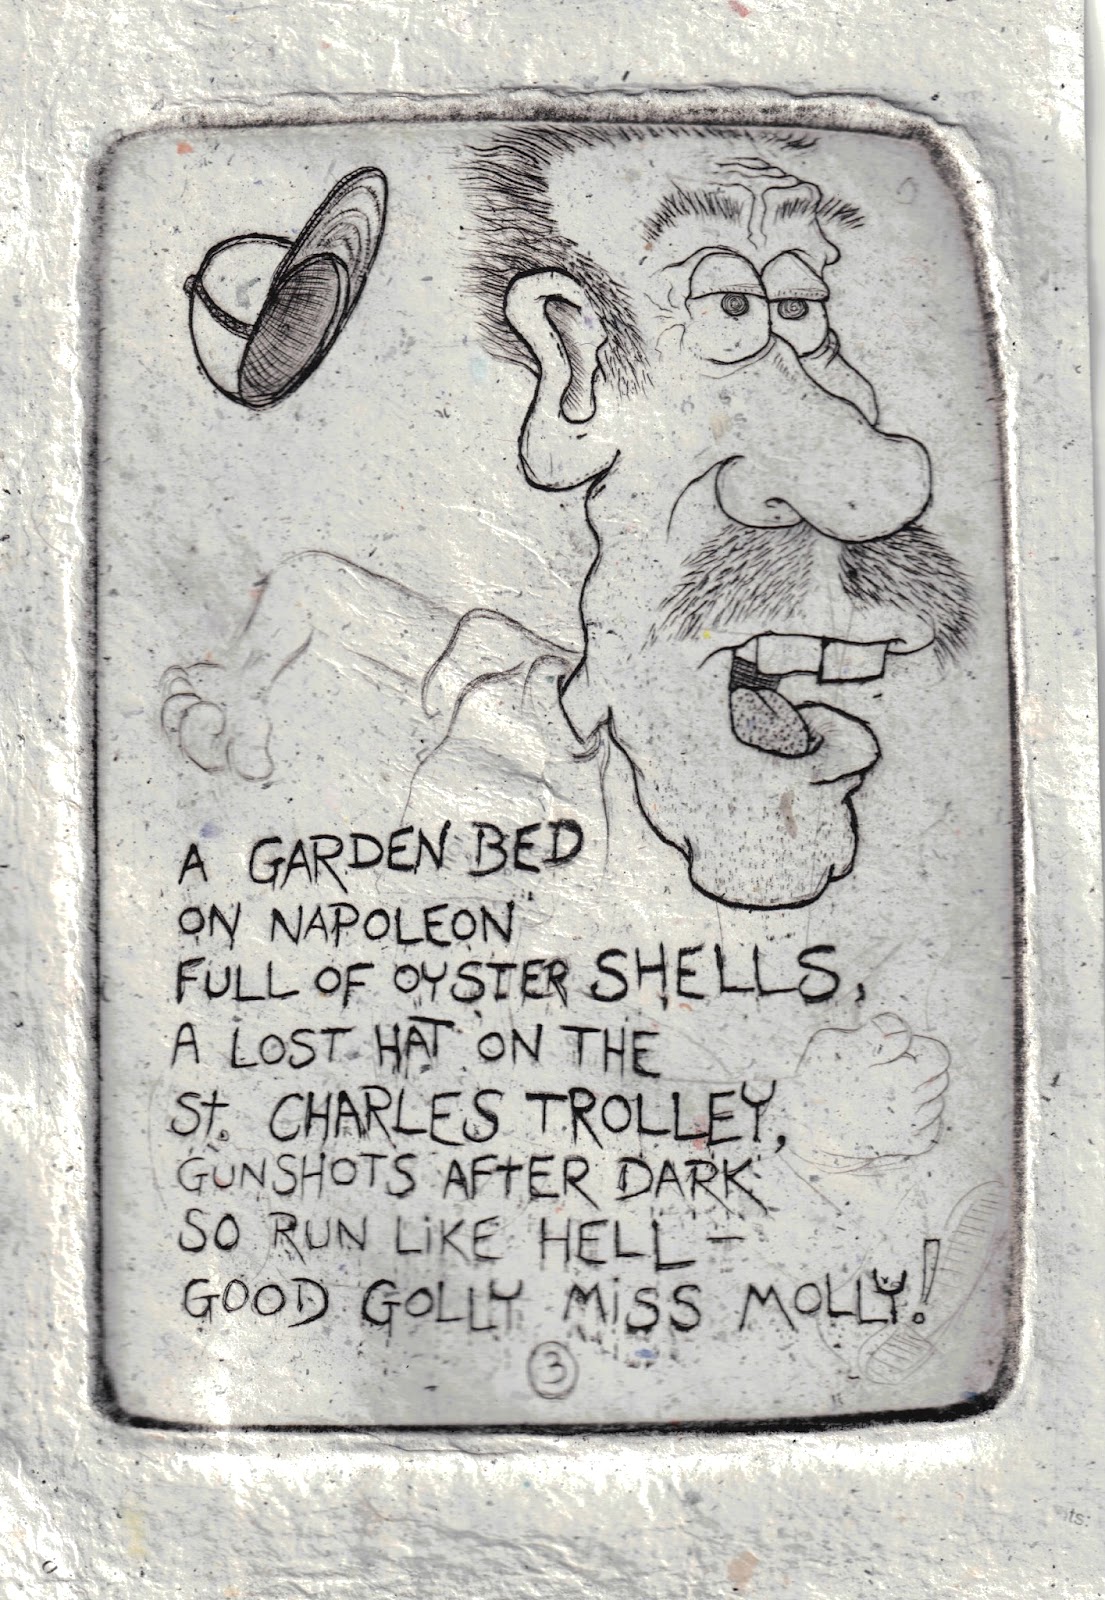 A GARDEN BED
ON NAPOLEON
FULL OF OYSTER SHELLS,
A LOST HAT ON THE
St. CHARLES TROLLEY,
GUNSHOTS AFtER DARK
SO RUN LiKE HELL -
GOOD GOLLY MiSS MOLLY!
3
nts: